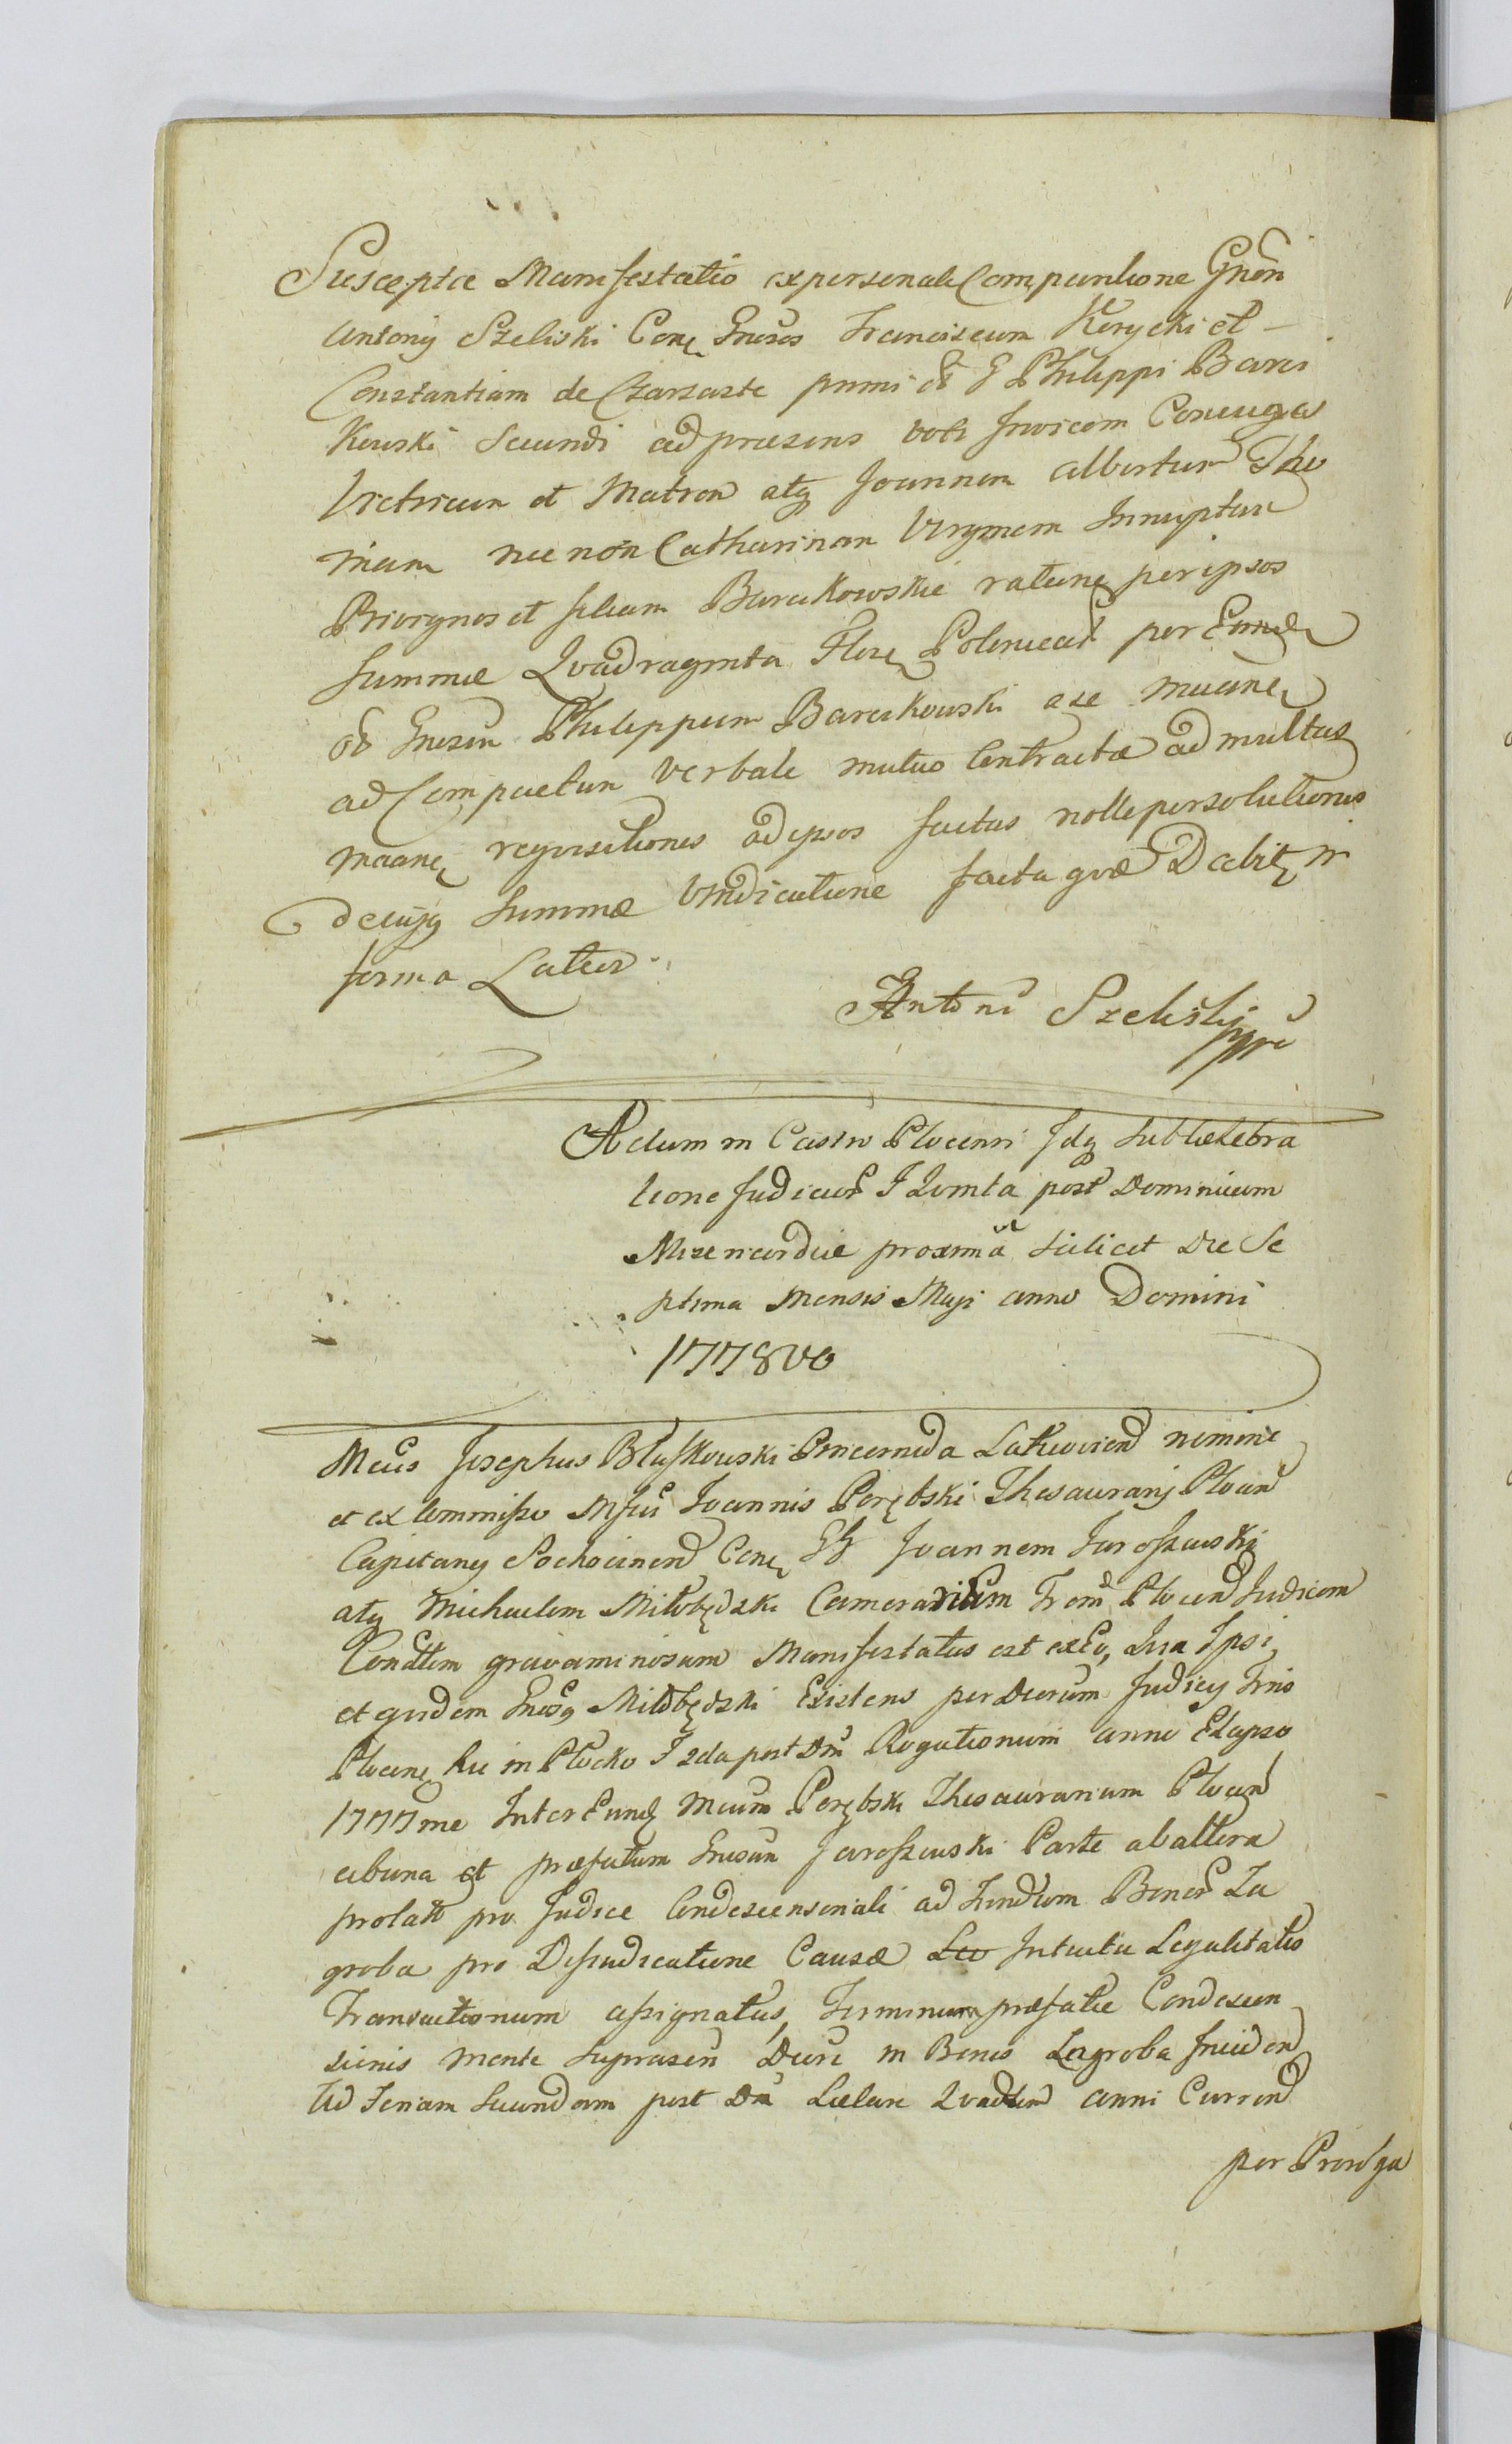 Suscepta Manifestatio ex personali Comparitione Gnõri
Antonij Szeliski Cone Gnosos Franciscum Kerycki et
Constantiam de Czarzaste primi et G Philippi Barci
kowski Secundi ad præsens voti Invicem Coniuges
Victricum et Matrem atq Joannem Albertum Tho
mam nec non Catharinam Virginem Innuptam
Privignos et filiam Barcikowskie ratione per ipsos
Summæ Quadraginta Flor Polonical per Eund
ol Gnosum Philippum Barcikowski a se Maane
ad Compactum Verbale mutuo Contractæ ad multas
Maane requisitiones ad ipsos factas nolle persolutionis
de cujq Summæ Vindicatione facta quæ Dabit in
forma Latior.
Antoni Szeliski mpp
Actum in Castro Plocensi Idq sub Celebra
tione Judicior F Quinta post Dominicam
Misericordiæ proxima scilicet Die Se
ptima Mensis Maji anno Domini
1778vo
Mcus Josephus Bluszkowski Pincernida Latiwicien nomine
et ex Commisso Mfici Joannis Porębski Thesaurarij Plocen
Capitanij Sochocinen Cone GG Joannem Jaroszewski
atq Michaelem Miłobędzki Camerarium Trem Plocen Judicem
Condlem gravaminosum Manifestatus est ex Eo, Quia Ipsi
et quidem Gnosq Miłobędzki Existens per Decretum Judicij Trris
Plocen hic in Płocko F 2da post Dm Rogationum anno Elapso
1777me Inter Eund Mcum Porębski Thesaurarium Plocen
ab una et præfatum Gnosum Jaroszewski Parte ab altera
prolato pro Judice Condescensionali ad Fundum Bonor Za
groba pro Disiudicatione Causæ Leo Intuitu Legalitatis
Transactionum assignatus, Terminum præfatæ Condescen
sionis mente suprascri Decre in Bonis Zagroba Inciden
Ad Feriam Secundam post Dm Lætare Quadlem anni Curren
per Proroga